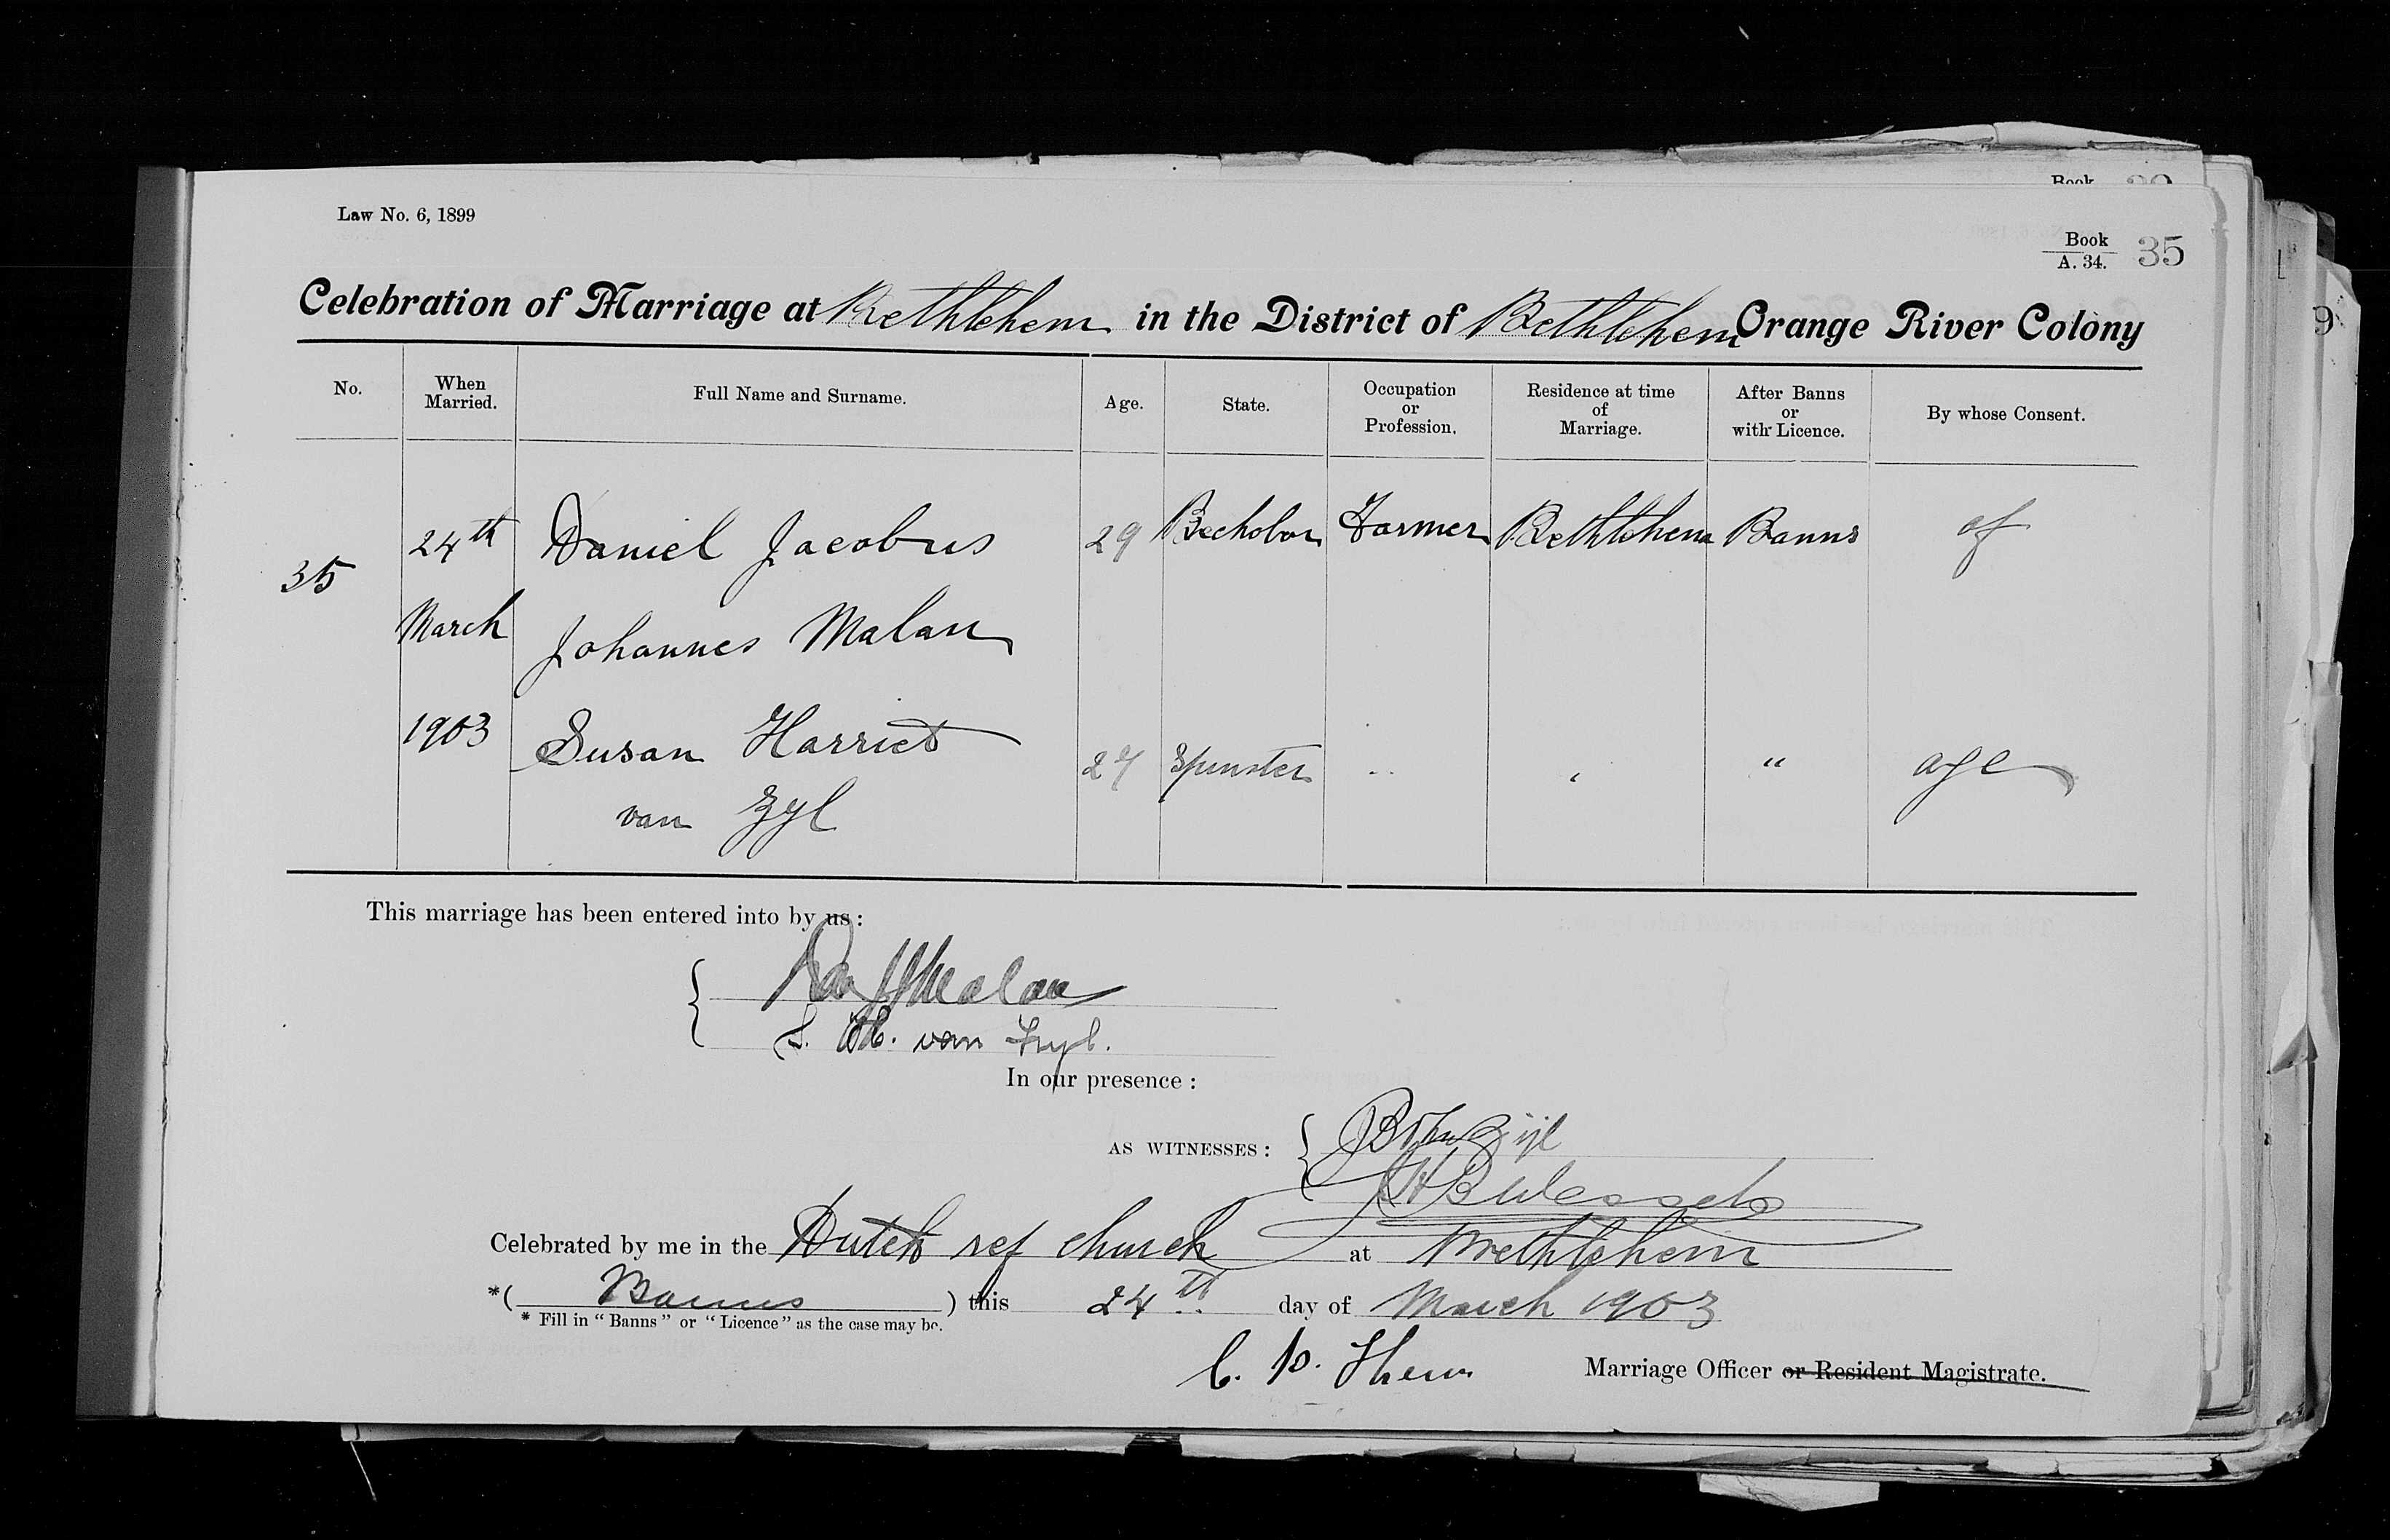 Book
Law No. 6, 1899
Book
A. 34.
35
Celebration of Marriage at Bethlehem in the District of Bethlehem Orange River Colony
9
No. When Married. Full Name and Surname. Age. State. Occupation or Profession. Residence at time of Marriage. After Banns or with Licence. By whose Consent.
35 24th Daniel Jacobus 29 Bachelor Farmer Bethlehem Banns of
March Johannes Malan
1903 Susan Harriet 27 Spinster " age
van Zyl
This marriage has been entered into by us:
Malan
S. H. van Zyl.
In our presence:
AS WITNESSES:
Zijl
Wessels
Celebrated by me in the Dutch ref church at Bethlehem
*( Banns ) this 24th day of March 1903
* Fill in "Banns" or "Licence" as the case may be.
C. P. Theron Marriage Officer or Resident Magistrate.